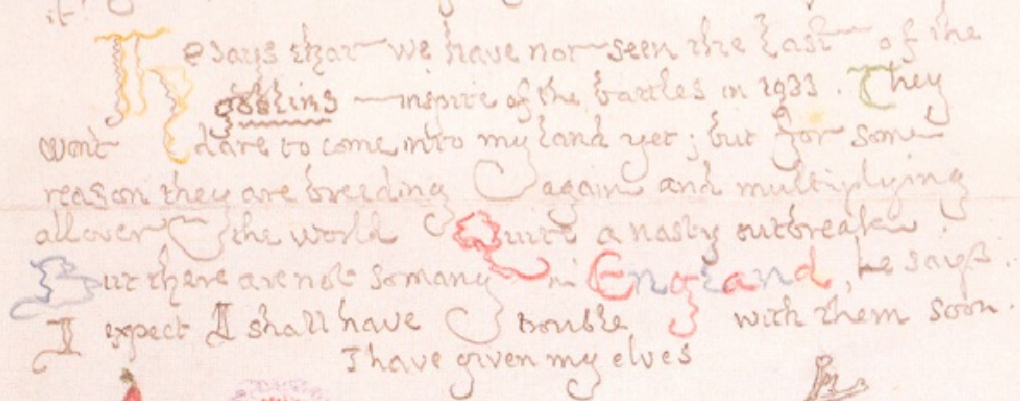 He says that we have not seen the last of the
goblins — inspite of the battles in 1933. They
wont dare to come into my land yet; but for some
reason they are breeding again and multiplying
all over the world. Quite a nasty outbreak.
But there are not so many in England, he says.
I expect I shall have trouble with them soon.
I have given my elves